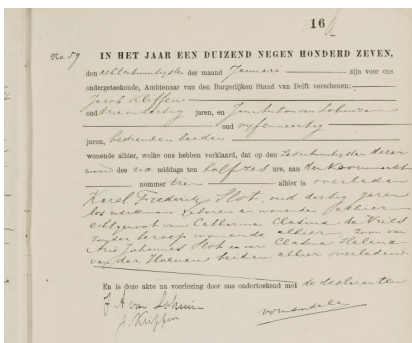 16
No. 59
IN HET JAAR EEN DUIZEND NEGEN HONDERD ZEVEN,
den achtentwintigsten der maand Januari zijn voor ons
ondergeteekende, Ambtenaar van den Burgerlijken Stand van Delft verschenen:
Jacob Kliffen
oud drieendertig jaren, en Jan Anton van Lohuizen
oud vijfenveertig
jaren, bedienden beiden
wonende alhier, welke ons hebben verklaard, dat op den zesentwintigsten dezer
maand des na middags ten half zes ure, aan den Koornmarkt
nommer tien alhier is overleden
Karel Frederik Slot, oud dertig jaren
werkman, geboren en wonende alhier
echtgenoot van Catharina Clasina de Vries
zonder beroep wonende alhier, zoon van
Arie Johannes Slot en van Clasina Helena
van der beiden alhier overleden.
En is deze akte na voorlezing door ons onderteekend met de declaranten.
J A van Lohuizen
J. Kliffen